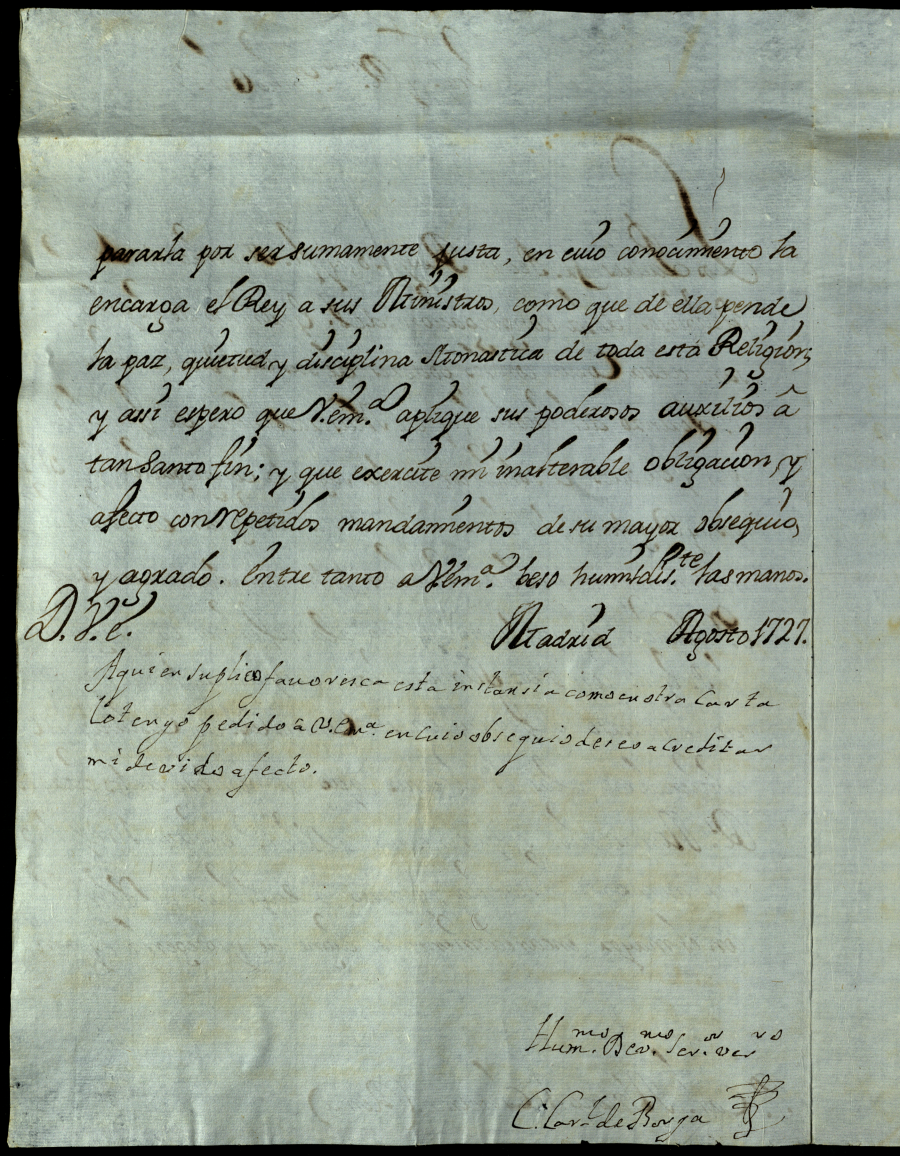 pararla por ser sumamente justa, en cuio conocimiento la
encarga el Rey a sus Ministros, como que de ella pende
la paz, quietud, y disciplina Monastica de toda esta Religion;
y assi espero que V.em.ª aplique sus poderosos auxilios â
tan santo fin; y que exercite mi inalterable obligacion, y
afecto con repetidos mandamientos de su mayor obsequio,
y agrado. Entre tanto a V.em.ª beso humildis.te las manos.
Madrid Agosto 1727.
D. V. e.
Aquien suplico favoresca esta instansia como en otra Carta
lo tengo pedido â V.Em.ª en Cuio obsequio deseo acreditar
mi devido afecto.
Hum.mo Dev.mo Ser.or vero
C. Car.l de Borga